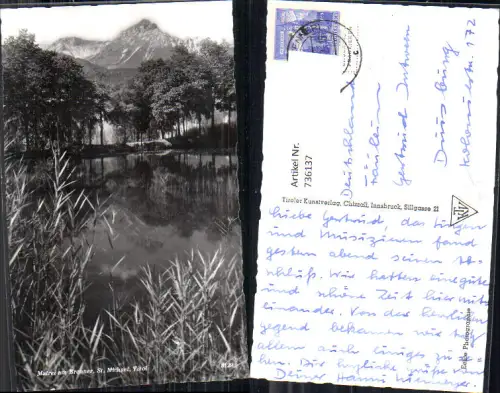 Matrei am Brenner, St. Michael, Tirol
Artikel Nr.
736137
Deutschland
Fräulein
Gertrud
Duisburg
172
Tiroler Kunstverlag Chizzali, Innsbruck, Sillgasse 21
Echte Photographie
Liebe Gertrud, das Singen
und Musizieren fand
gestern abend seinen Ab-
schluß. Wir hatten eine gute
und schöne Zeit hier mit-
einander. Von der herrlichen
gegend bekamen wir
allem auch einiges zu se-
hen. Dir herzliche Grüße von
Deiner Hanni